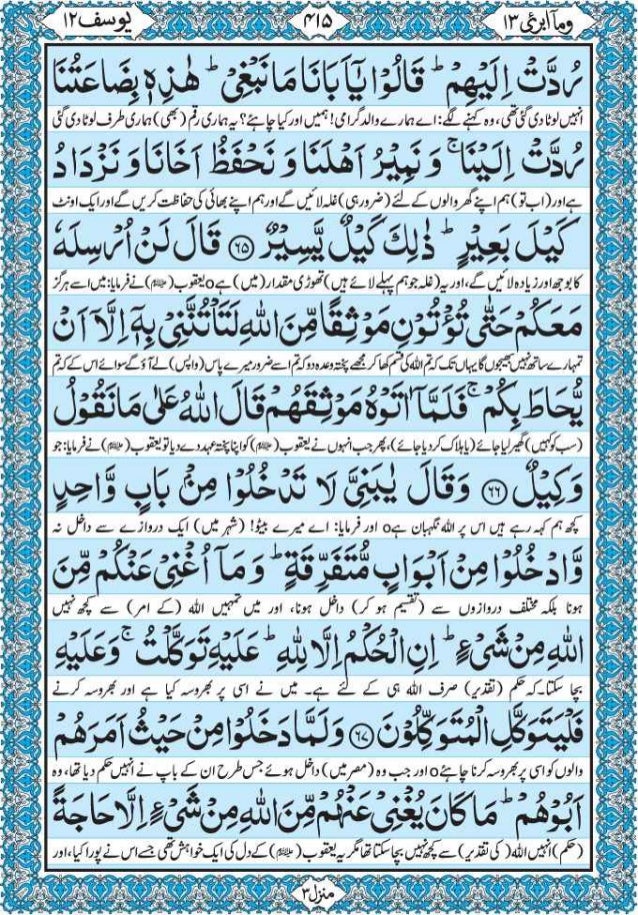 وما آبرئ ١٣
٤١٥
يوسف ١٢
رُدَّتْ اِلَيْهِمْ ؕ قَالُوْا يٰۤاَبَانَا مَا نَبْغِيْ ؕ هٰذِهٖ بِضَاعَتُنَا
انہیں لوٹا دی گئی تھی، وہ کہنے لگے: اے ہمارے والد گرامی! ہمیں اور کیا چاہئے؟ یہ ہماری رقم (بھی) ہماری طرف لوٹا دی گئی
رُدَّتْ اِلَيْنَا ۚ وَ نَمِيْرُ اَهْلَنَا وَ نَحْفَظُ اَخَانَا وَ نَزْدَادُ
ہے اور (اب تو) ہم اپنے گھر والوں کے لئے (ضرور ہی) غلہ لائیں گے اور ہم اپنے بھائی کی حفاظت کریں گے اور ایک اونٹ
كَيْلَ بَعِيْرٍ ؕ ذٰلِكَ كَيْلٌ يَّسِيْرٌ ۝٦٥ قَالَ لَنْ اُرْسِلَهٗ
کا بوجھ اور زیادہ لائیں گے، اور یہ (غلہ جو ہم پہلے لائے ہیں) تھوڑی مقدار (میں) ہے o یعقوب (علیہ السلام) نے فرمایا: میں اسے ہرگز
مَعَكُمْ حَتّٰى تُؤْتُوْنِ مَوْثِقًا مِّنَ اللّٰهِ لَتَاْتُنَّنِيْ بِهٖۤ اِلَّاۤ اَنْ
تمہارے ساتھ نہیں بھیجوں گا یہاں تک کہ تم اللہ کی قسم کھا کر مجھے پختہ وعدہ دو کہ تم اسے ضرور میرے پاس (واپس) لے آؤ گے سوائے اس کے کہ تم
يُّحَاطَ بِكُمْ ۚ فَلَمَّاۤ اٰتَوْهُ مَوْثِقَهُمْ قَالَ اللّٰهُ عَلٰى مَا نَقُوْلُ
(سب کو کہیں) گھیر لیا جائے (یا ہلاک کر دیا جائے)، پھر جب انہوں نے یعقوب (علیہ السلام) کو اپنا پختہ عہد دے دیا تو یعقوب (علیہ السلام) نے فرمایا: جو
وَكِيْلٌ ۝٦٦ وَقَالَ يٰبَنِيَّ لَا تَدْخُلُوْا مِنْۢ بَابٍ وَّاحِدٍ
کچھ ہم کہہ رہے ہیں اس پر اللہ نگہبان ہے o اور فرمایا: اے میرے بیٹو! (شہر میں) ایک دروازے سے داخل نہ
وَّادْخُلُوْا مِنْ اَبْوَابٍ مُّتَفَرِّقَةٍ ؕ وَ مَاۤ اُغْنِيْ عَنْكُمْ مِّنَ
ہونا بلکہ مختلف دروازوں سے (تقسیم ہو کر) داخل ہونا، اور میں تمہیں اللہ (کے امر) سے کچھ نہیں
اللّٰهِ مِنْ شَيْءٍ ؕ اِنِ الْحُكْمُ اِلَّا لِلّٰهِ ؕ عَلَيْهِ تَوَكَّلْتُ ۚ وَ عَلَيْهِ
بچا سکتا۔ کہ حکم (تقدیر) صرف اللہ ہی کے لئے ہے۔ میں نے اسی پر بھروسہ کیا ہے اور بھروسہ کرنے
فَلْيَتَوَكَّلِ الْمُتَوَكِّلُوْنَ ۝٦٧ وَلَمَّا دَخَلُوْا مِنْ حَيْثُ اَمَرَهُمْ
والوں کو اسی پر بھروسہ کرنا چاہئے o اور جب وہ (مصر میں) داخل ہوئے جس طرح ان کے باپ نے انہیں حکم دیا تھا، وہ
اَبُوْهُمْ ؕ مَا كَانَ يُغْنِيْ عَنْهُمْ مِّنَ اللّٰهِ مِنْ شَيْءٍ اِلَّا حَاجَةً
(حکم) انہیں اللہ (کی تقدیر) سے کچھ نہیں بچا سکتا تھا مگر یہ یعقوب (علیہ السلام) کے دل کی ایک خواہش تھی جسے اس نے پورا کیا، اور
منزل ٣